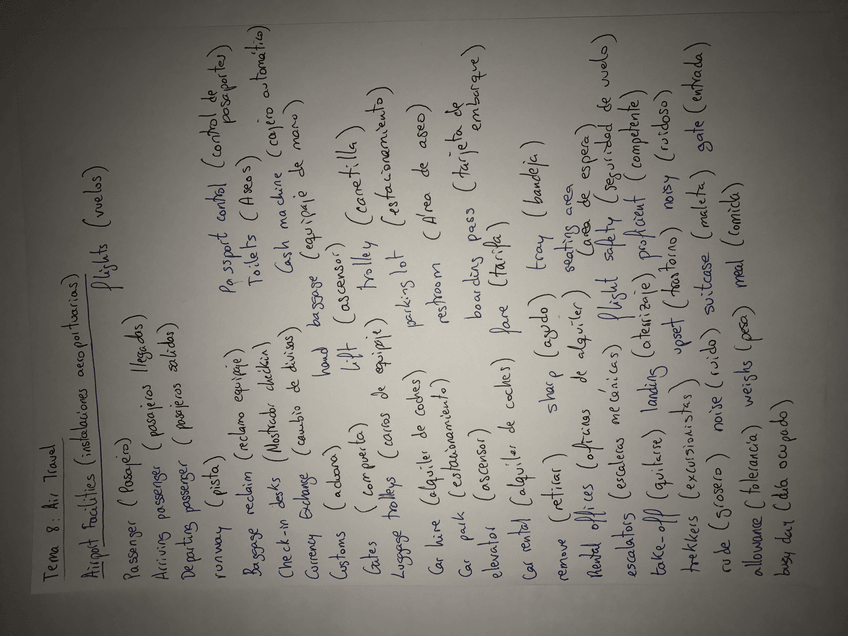 Tema 8: Air Travel
Airport Facilities (instalaciones aeroportuarias)
flights (vuelos)
Passenger (Pasajero)
Arriving passenger (pasajeros llegados)
Departing passenger (pasajeros salidas)
runway (pista) Passport control (control de pasaportes)
Baggage reclaim (reclamo equipaje) Toilets (Aseos)
Check-in desks (Mostrador chéckin) Cash machine (cajero automático)
Currency Exchange (cambio de divisas) hand baggage (equipaje de mano)
Customs (aduana) lift (ascensor)
Gates (compuerta) trolley (carretilla)
Luggage trolleys (carros de equipaje) parking lot (estacionamiento)
Car hire (alquiler de coches) restroom (Área de aseo)
Car park (estacionamiento)
elevator (ascensor) boarding pass (tarjeta de embarque)
Car rental (alquiler de coches) fare (tarifa)
remove (retirar) sharp (agudo) tray (bandeja)
Rental offices (oficinas de alquiler) seating area (área de espera)
escalators (escaleras mecánicas) flight safety (seguridad de vuelo)
take-off (quitarse) landing (aterrizaje) proficient (competente)
trekkers (excursionistas) upset (trastorno) noisy (ruidoso)
rude (grosero) noise (ruido) suitcase (maleta) gate (entrada)
allowance (tolerancia) weighs (pesa) meal (comida)
busy day (día ocupado)